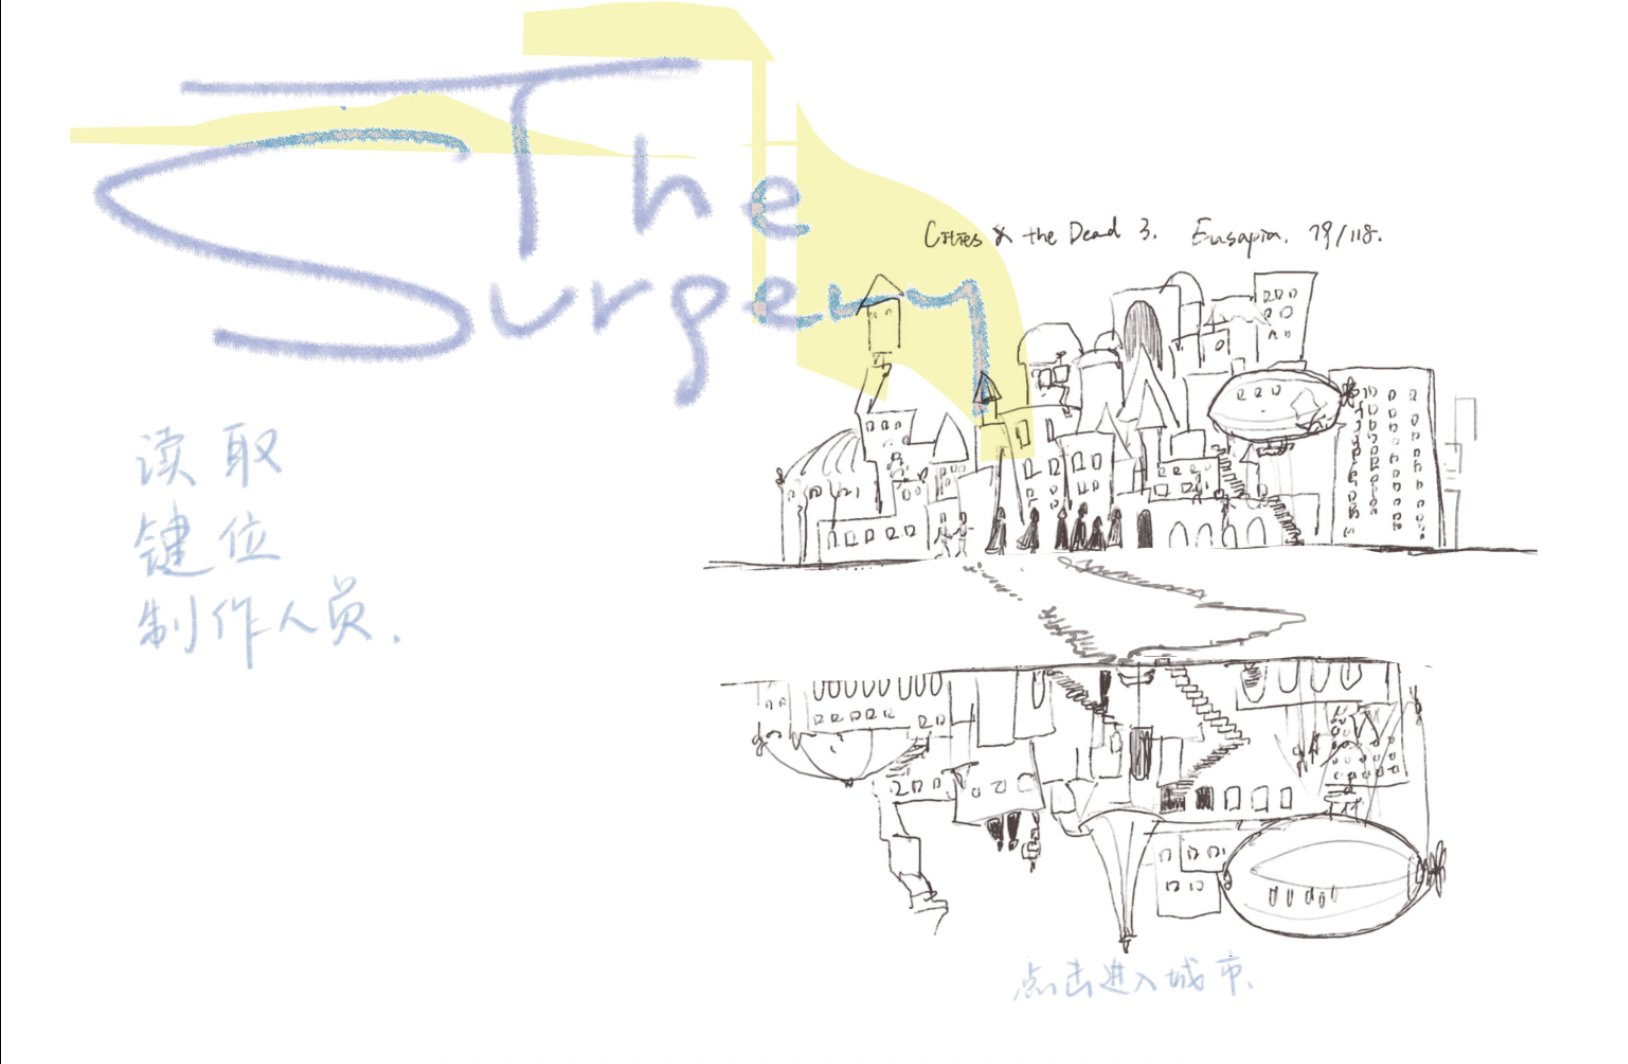 The
Surgery
Cities & the Dead 3. Eusapia. 79/118.
读取
键位
制作人员.
点击进入城市.